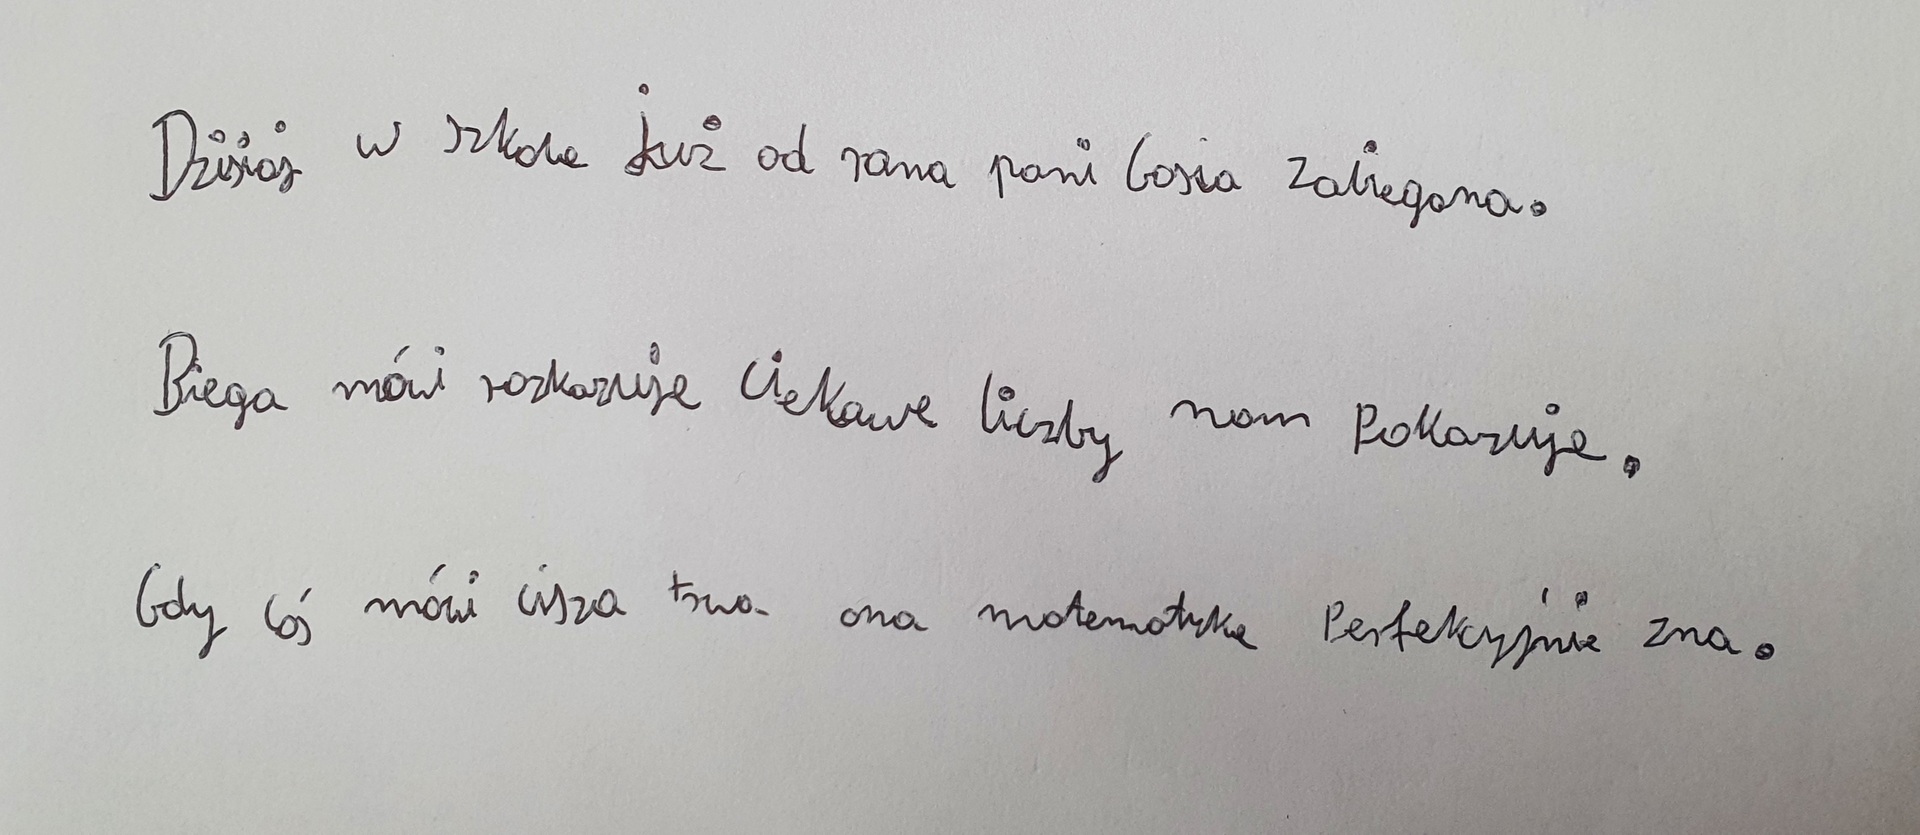 Dzisiaj w szkole już od rana pani Gosia zabiegana.
Biega mówi rozkazuje ciekawe liczby nam pokazuje.
Gdy coś mówi cisza trwa ona matematykę perfekcyjnie zna.